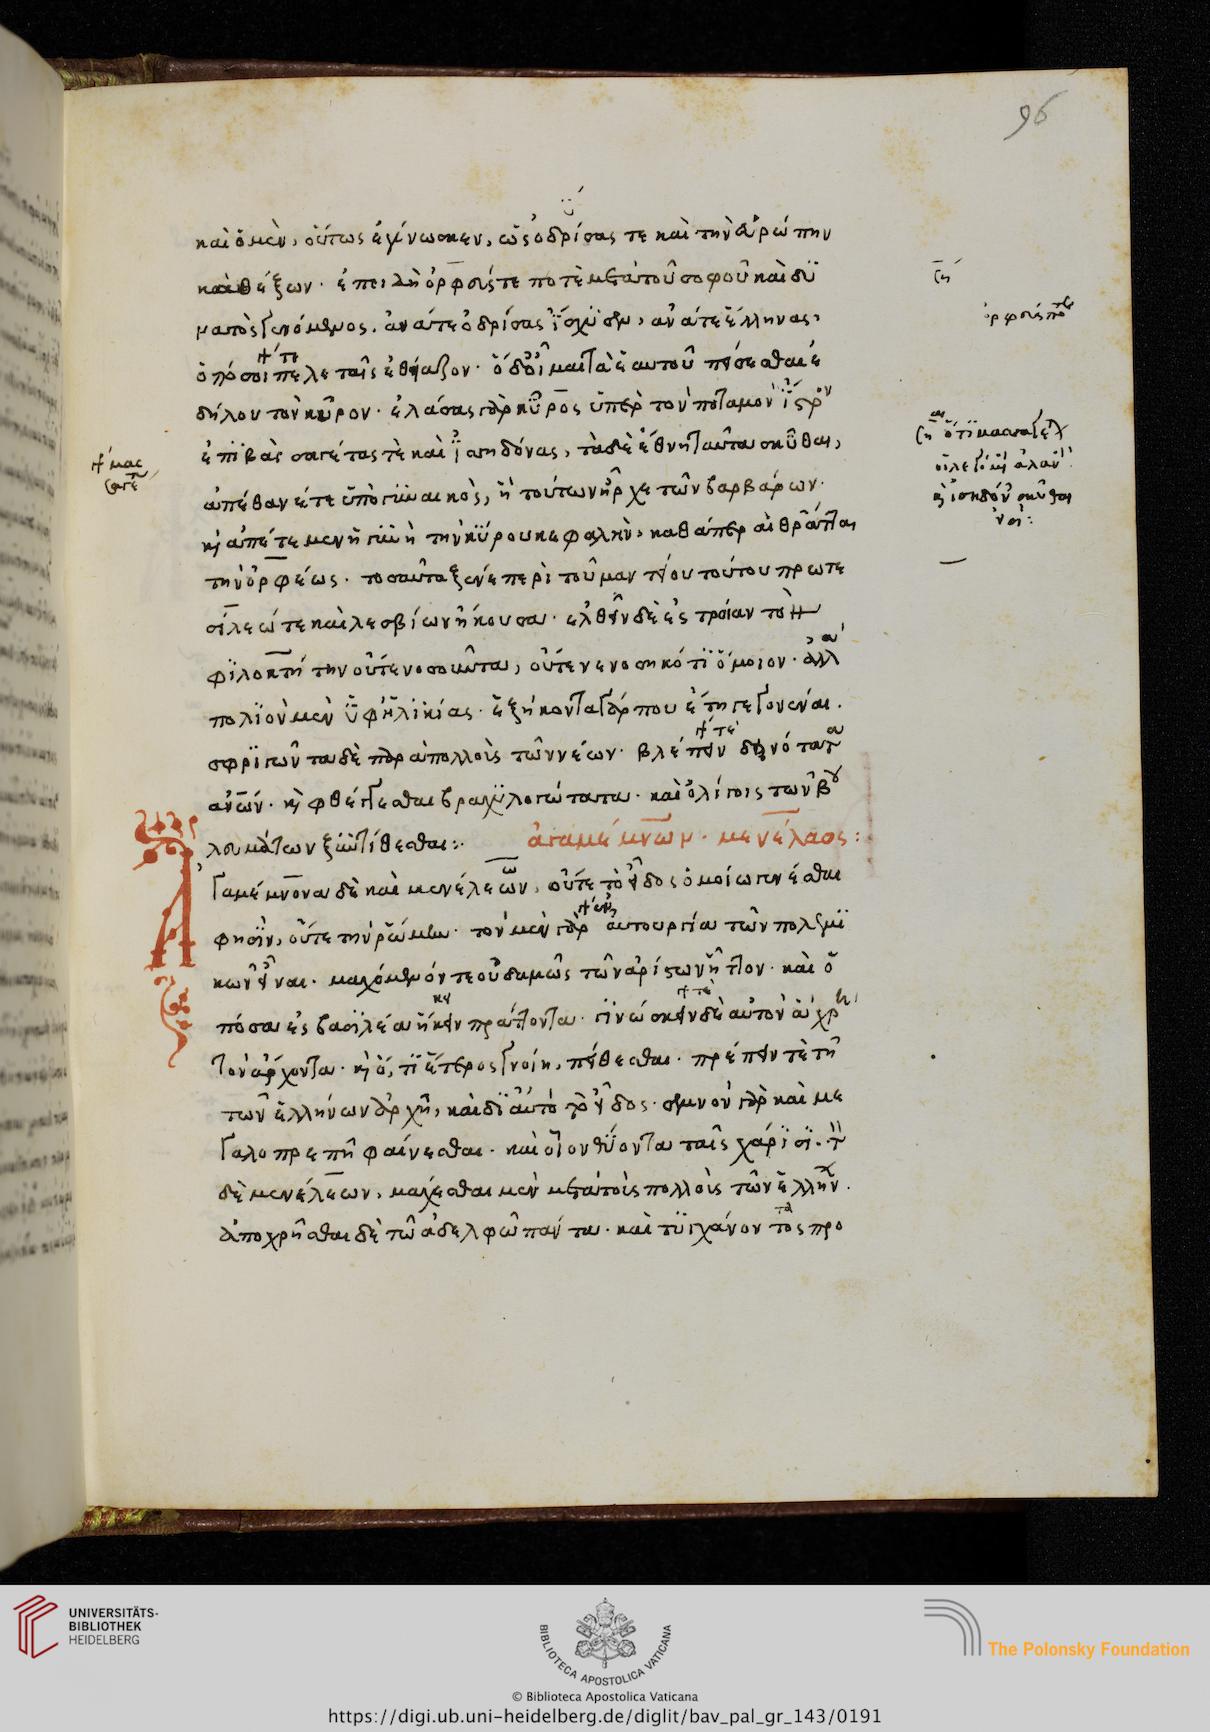 96
καὶ ὁ μὲν, οὕτως ἐγίνωσκεν, ὡς ὀδρύσας τε καὶ τὴν εὐρώπην
καθέξων. ἐπειδὴ ὀρφεύς τέ ποτε μετὰ τοῦ σοφοῦ καὶ δυ
νατὸς γενόμενος. ἀνά τε ὀδρύσας ἴσχυσεν, ἀνά τε ἕλληνας,
ὁπόσοι τελεταῖς ἐθείαζον. ὁ δ' οἶμαι τὰ ἑαυτοῦ πείσεσθαι ἐ
δήλου τὸν κῦρον. ἐλάσας γὰρ κῦρος ὑπὲρ τὸν ποταμὸν ἴστρον
ἐπὶ μασσαγέτας τὲ καὶ ἰσσηδόνας, τὰ δὲ ἔθνη ταῦτα σκύθαι,
ἀπέθανέ τε ὑπὸ γυναικὸς, ἣ τούτων ἦρχε τῶν βαρβάρων.
κὶ ἀπέτεμεν ἡ γυνὴ τὴν κύρου κεφαλὴν, καθάπερ αἱ θρᾶτται
τὴν ὀρφέως. τοσαῦτα ξένε περὶ τοῦ μαντείου τούτου πρωτε
σίλεώ τε καὶ λεσβίων ἤκουσα. ἐλθεῖν δὲ ἐς τροίαν τὸν
φιλοκτήτην οὔτε νοσοῦντα, οὔτε νενοσηκότι ὅμοιον. ἀλλὰ
πολιὸν μὲν ὑφ' ἡλικίας. ἑξήκοντα γάρ που ἔτη γεγονέναι.
σφριγῶντα δὲ παρὰ πολλοὺς τῶν νέων. βλέπειν δεινότατα
ἀνῶν. κὶ φθέγγεσθαι βραχυλογώτατα. καὶ ὀλίγοις τῶν βου
λευμάτων ξυντίθεσθαι:. ἀγαμέμνων. μενέλαος:
Ἀγαμέμνονα δὲ καὶ μενέλεων, οὔτε τὸ εἶδος ὁμοίω γενέσθαι
φησὶν, οὔτε τὴν ῥώμην. τὸν μὲν γὰρ αὐτουργία τῶν πολεμι
κῶν εἶναι. μαχόμενόν τε οὐδαμῶς τῶν ἀρίστων ἧττον. καὶ ὁ
πόσα ἐς βασιλέα ἥκειν πράττοντα. γινώσκειν δὲ αὐτὸν ἃ χρὴ
τὸν ἄρχοντα. κὶ ὅ, τι ἕτερος γνοίη, πείθεσθαι. πρέπειν τὲ τῇ
τῶν ἑλλήνων ἀρχῇ, καὶ δι' αὐτὸ τὸ εἶδος. σεμνὸν γὰρ καὶ με
γαλοπρεπῆ φαίνεσθαι. καὶ οἷον θύοντα ταῖς χάρισι. τὸν
δὲ μενέλεων, μάχεσθαι μὲν μετὰ τοὺς πολλοὺς τῶν ἑλλήνων.
ἀποχρῆσθαι δὲ τῶ ἀδελφῶ πάντα. καὶ τυγχάνοντος προ
ὀρφεὺς
μασ
σαγε
UNIVERSITÄTS-
BIBLIOTHEK
HEIDELBERG
BIBLIOTECA APOSTOLICA VATICANA
The Polonsky Foundation
© Biblioteca Apostolica Vaticana
https://digi.ub.uni-heidelberg.de/diglit/bav_pal_gr_143/0191